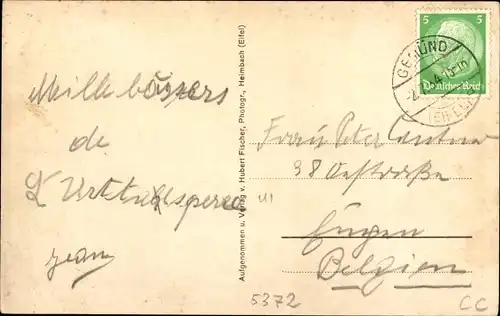 Mille baisers
de
L'Urttalsperre
Jean
Aufgenommen u. Verlag v. Hubert Fischer, Photogr., Heimbach (Eifel)
5 5
Deutsches Reich
GEMÜND
(EIFEL)
Frau Peter
38
Eupen
Belgien
5372
CC